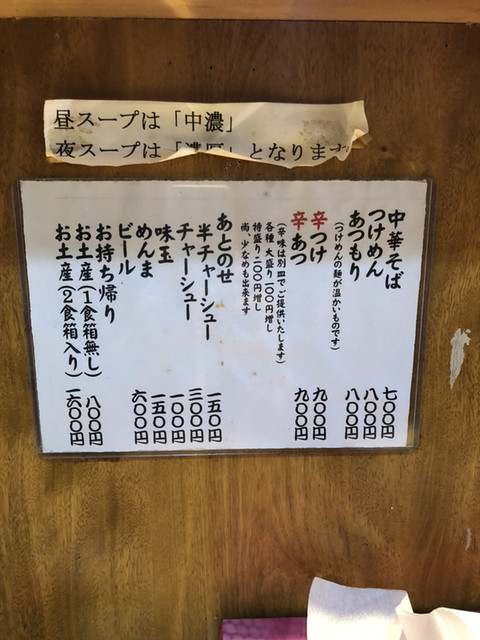 昼スープは「中濃」
夜スープは「濃厚」となります
中華そば 七〇〇円
つけめん 八〇〇円
あつもり 八〇〇円
(つけめんの麺が温かいものです)
辛つけ 九〇〇円
辛あつ 九〇〇円
(辛味は別皿でご提供いたします)
各種 大盛り一〇〇円増し
特盛り二〇〇円増し
尚、少なめも出来ます
あとのせ
半チャーシュー 一五〇円
チャーシュー 三〇〇円
味玉 一〇〇円
めんま 一五〇円
ビール 六〇〇円
お持ち帰り
お土産(1食箱無し) 八〇〇円
お土産(2食箱入り) 一六〇〇円